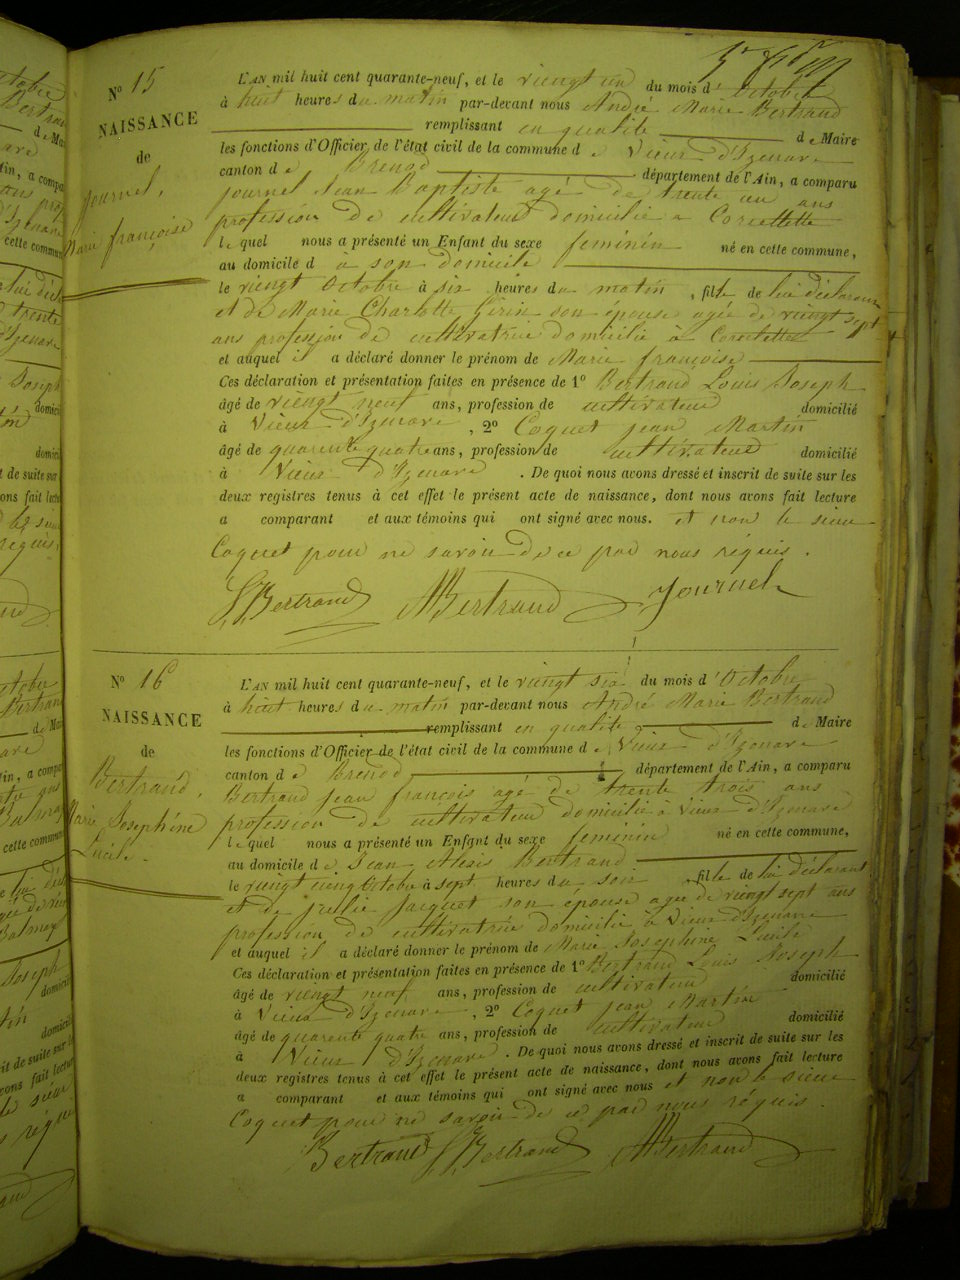 N° 15
NAISSANCE
de
Journel,
Marie françoise
L'AN mil huit cent quarante-neuf, et le viengt un du mois d'Octobre
à huit heures du matin par-devant nous André Marie Bertrand
remplissant en qualité de Maire
les fonctions d'Officier de l'état civil de la commune de Vieux d'Izenave
canton de Brenod département de l'Ain, a comparu
Journel Jean Baptiste agé de trente un ans
profession de cultivateur domicilié a Corcelette
lequel nous a présenté un Enfant du sexe feminin né en cette commune,
au domicile d à son domicile
le viengt Octobre à six heures du matin, fille de lui déclarant
et de Marie Charlotte Girin son épouse agée de viengt sept
ans profession de cultivatrice domicilié à Corcelette
et auquel il a déclaré donner le prénom de Marie françoise
Ces déclaration et présentation faites en présence de 1° Bertrand Louis Joseph
âgé de viengt neuf ans, profession de cultivateur domicilié
à Vieux d'Izenave, 2° Coquet jean Martin
âgé de quarente quatre ans, profession de cultivateur domicilié
à Vieux d'Izenave. De quoi nous avons dressé et inscrit de suite sur les
deux registres tenus à cet effet le présent acte de naissance, dont nous avons fait lecture
a comparant et aux témoins qui ont signé avec nous. et non le sieur
Coquet pour ne savoir de ce par nous réquis.
LBertrand ABertrand Journel
N° 16
NAISSANCE
de
Bertrand,
Marie Josephine
L'AN mil huit cent quarante-neuf, et le viengt six du mois d'Octobre
à huit heures du matin par-devant nous André Marie Bertrand
remplissant en qualité de Maire
les fonctions d'Officier de l'état civil de la commune de Vieux d'Izenave
canton de Brenod département de l'Ain, a comparu
Bertrand jean françois agé de trente trois ans
profession de cultivateur domicilié à Vieux d'Izenave
lequel nous a présenté un Enfant du sexe feminin né en cette commune,
au domicile de Jean Alexis Bertrand
le viengt cinq Octobre à sept heures du soir, fille de lui déclarant
et de julie Jacquet son épouse agée de viengt sept ans
profession de cultivatrice domicilié à Vieux d'Izenave
et auquel il a déclaré donner le prénom de Marie Josephine
Ces déclaration et présentation faites en présence de 1° Bertrand Louis Joseph
âgé de viengt neuf ans, profession de cultivateur domicilié
à Vieux d'Izenave, 2° Coquet jean Martin
âgé de quarente quatre ans, profession de cultivateur domicilié
à Vieux d'Izenave. De quoi nous avons dressé et inscrit de suite sur les
deux registres tenus à cet effet le présent acte de naissance, dont nous avons fait lecture
a comparant et aux témoins qui ont signé avec nous et non le sieur
Coquet pour ne savoir de ce par nous réquis.
Bertrand LBertrand ABertrand